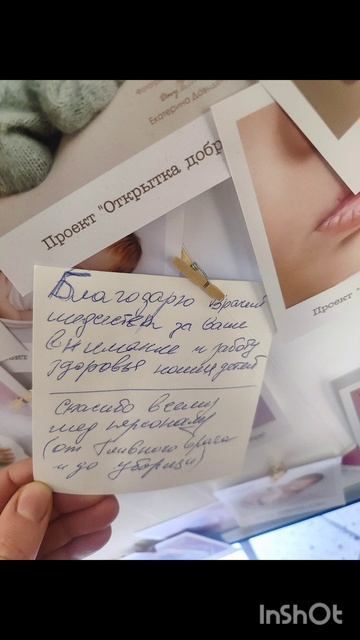 Екатерина Довга
Проект "Открытка добр
Проект "
Благодарю врачей
медсестер за Ваше
внимание и заботу
здоровья наших детей
Спасибо всему
мед персоналу
(от Главного врача
и до уборщиц)
InShOt